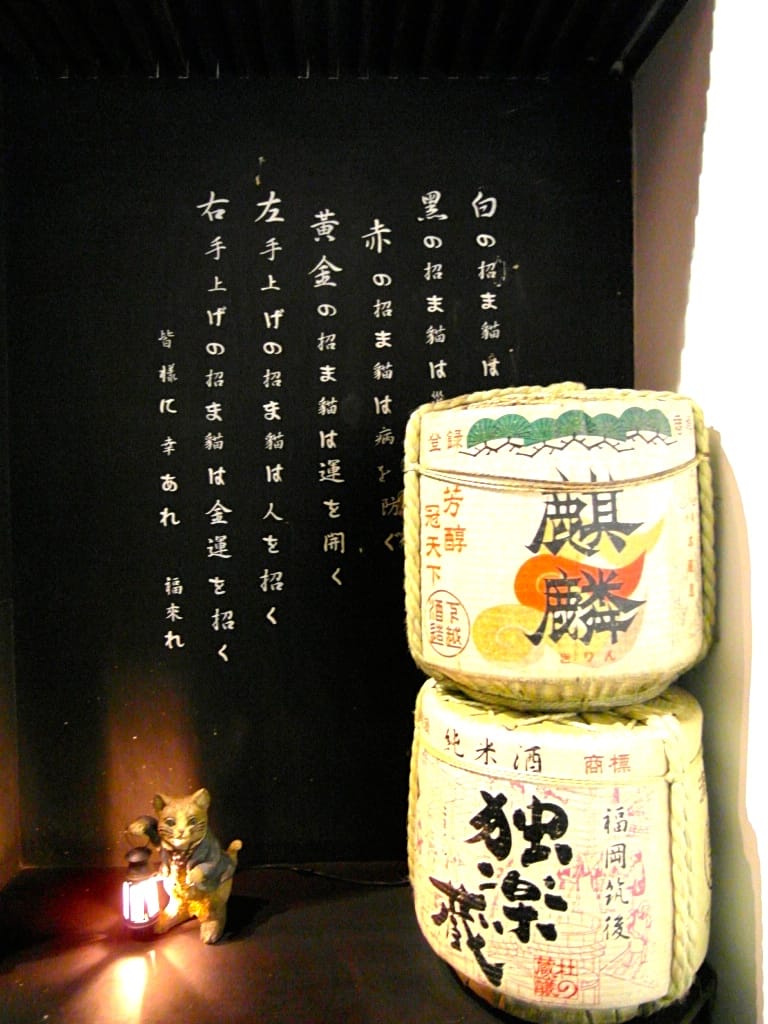 白の招ま貓は
黑の招ま貓は
赤の招ま貓は病を防ぐ
黃金の招ま貓は運を開く
左手上げの招ま貓は人を招く
右手上げの招ま貓は金運を招く
皆樣に幸あれ 福来れ
登録
芳醇
冠天下
麒麟
きりん
下越
酒造
純米酒
商標
福岡筑後
独楽蔵
杜の
蔵醸